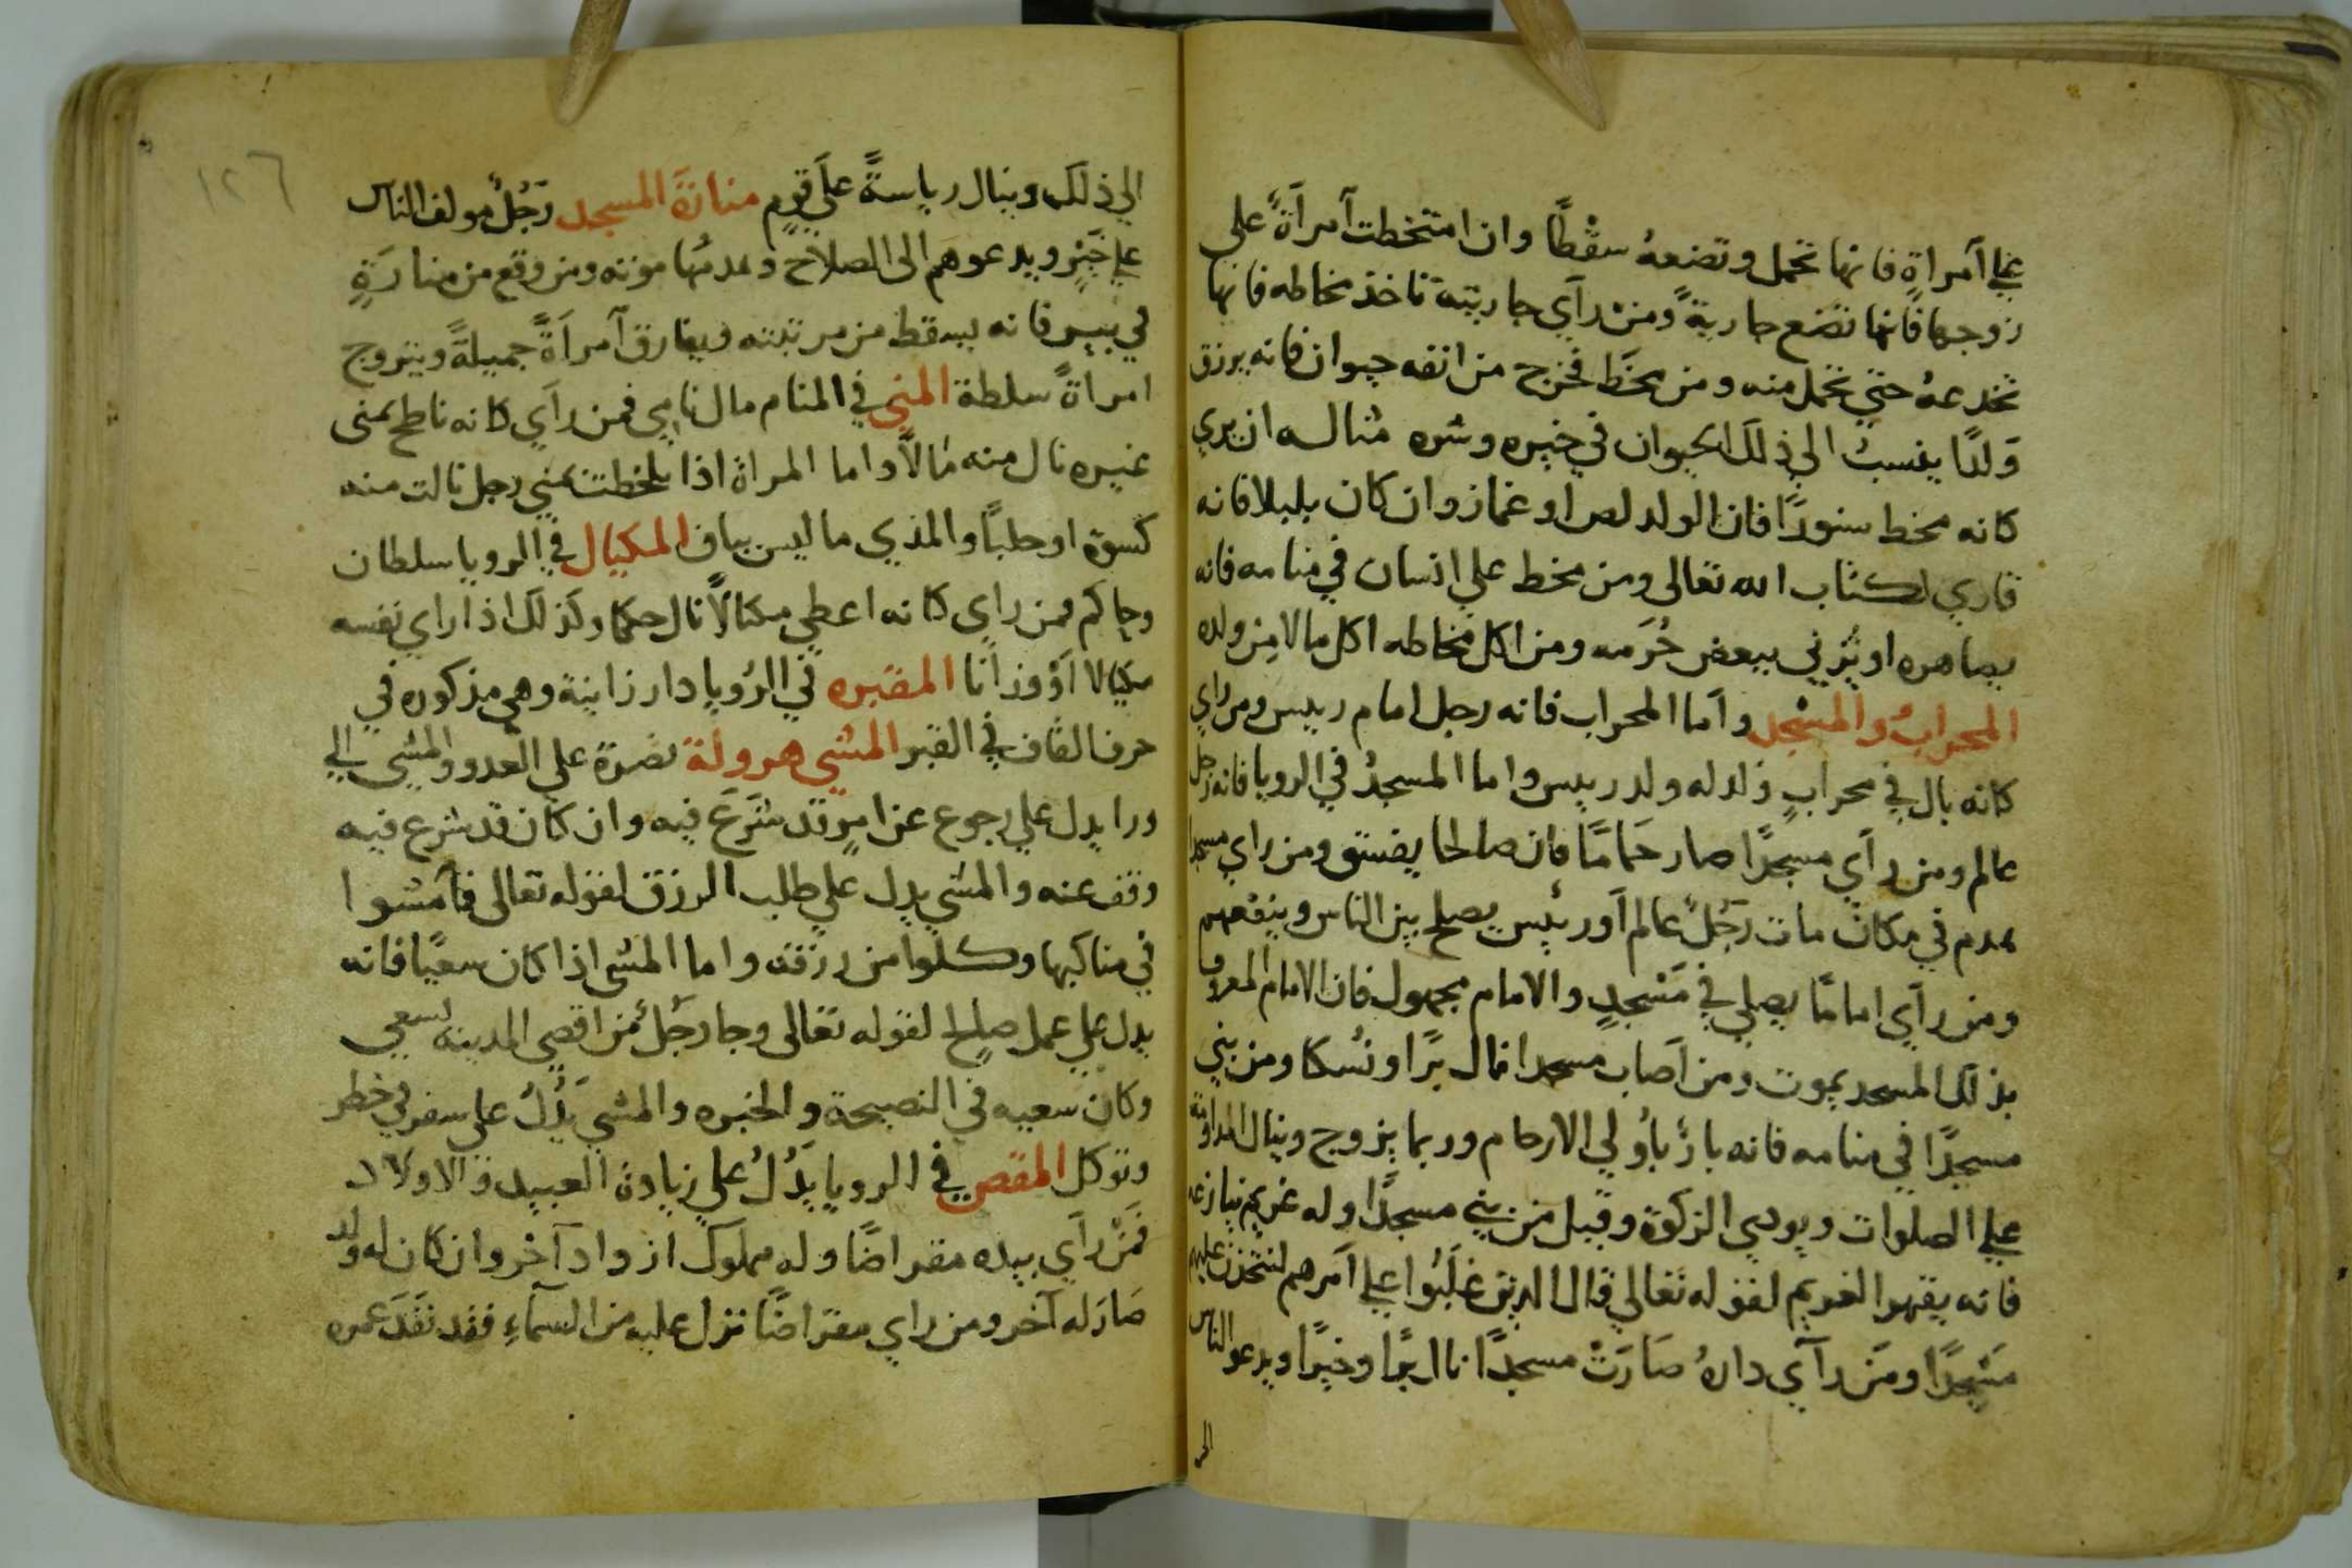 علي آمراةٍ فانها تحمل وتضعهُ سقْطاً وان امتخطت آمرآةً على
زوجها فانها تضع جاريةً ومنْ رآي جاريته تاخذ مخاطه فانها
تخدعهُ حتي تحمل منه ومن مخَط فخرج من انفه حيوان فانه يرزق
وَلدًا ينسبُ الي ذلك الحيوان في خيره وشره مثاله ان يري
كانه مخط سنورًا فان الولد لص او غماز وان كان بلبلا فانه
قاري لكتاب الله تعالى ومن مخط علي انسان في منامه فانه
يصاهره او يزني ببعض حُرَمه ومن اكل مخاطه اكل مالا مِن ولده
المحرابُ والمسْجد وآما المحراب فانه رجل امام رييس ومن راي
كانه بال في محرابٍ ولد له ولد رييس واما المسجدُ في الرويا فانه رجل
عالم ومن رآي مسجدًا صار حَمامًا فان صالحا يفسق ومن راي مسجدا
هدم في مكان مات رَجُلٌ عالم آو رئيس يصلح بين الناس وينفعهم
ومن رآي امامًا يصلي في مَسْجدٍ والامام مجهول فان الامام المعروف
بذلك المسجد يموت ومن اصَاب مسجدا نال برًا ونُسكا ومن بني
مسجدًا في منامه فانه بارٌ باُولي الارحام وربما يزوج وينال المداومة
علي الصلوات ويودي الزكوة وقيل من بني مسجدًا وله غريم ينازعه
فانه يقهر الغريم لقوله تعالي قال الذين غلَبُوا علي آمرهم لنتخذن عليهم
مَسْجدًا ومَن رآي دارهُ صَارَتْ مسجدًا نال برًا وخيرًا ويدعو الناس
الي
١٢٦
الي ذلك وينال رياسةً علَي قومٍ منارَة المسجد رَجُلٌ مولف الناس
علي خَيْرٍ ويدعوهم الى الصلاح وهدمُها موته ومن وقع من منارَةٍ
في بيرٍ فانه يسقط من مرتبته ويفارق آمرآةً جميلةً ويتزوج
امراةً سلطة المني في المنام مال نامي فمن رآي كانه ناطح بمنى
غيره نال منه مَالاً واما المراة اذا تلخطت بمني رجل نالت منه
كسوة او حلبًا والمذي ما ليس بباق المكيال في الرويا سلطان
وحاكم فمن راي كانه اعطي مكيالاً نال حكما وكذلك اذا راي نفسه
مكيالا آوْ وزانًا المقبره في الرُويا دار زانية وهي مذكوره في
حرف القاف في القبر المشي هرولة نصرة علي العدو والمشي الي
ورا يدل علي رجوع عن امرٍ قد شَرَعَ فيه وان كان قد شرع فيه
وقف عنه والمشي يدل علي طلب الرزق لقوله تعالى فآمشوا
في مناكبها وكلوا من رزقه واما المشي اذا كان سعيًا فانه
يدل علي عمل صالح لقوله تعالى وجا رجُلٌ من اقصي المدينه يسعي
وكان سعيه في النصيحة والخيره والمشي يَدُلُ علي سفر في خطر
وتوكل المقص في الرويا يَدُلُ علي زيادة العبيد والاولاد
فمَنْ رآي بيده مقراضًا وله مملوك ازداد آخر وان كان له ولد
صَارَ له آخر ومن راي مقراضًا نزل عليه من السمآءِ فقد نفَدَ عمره